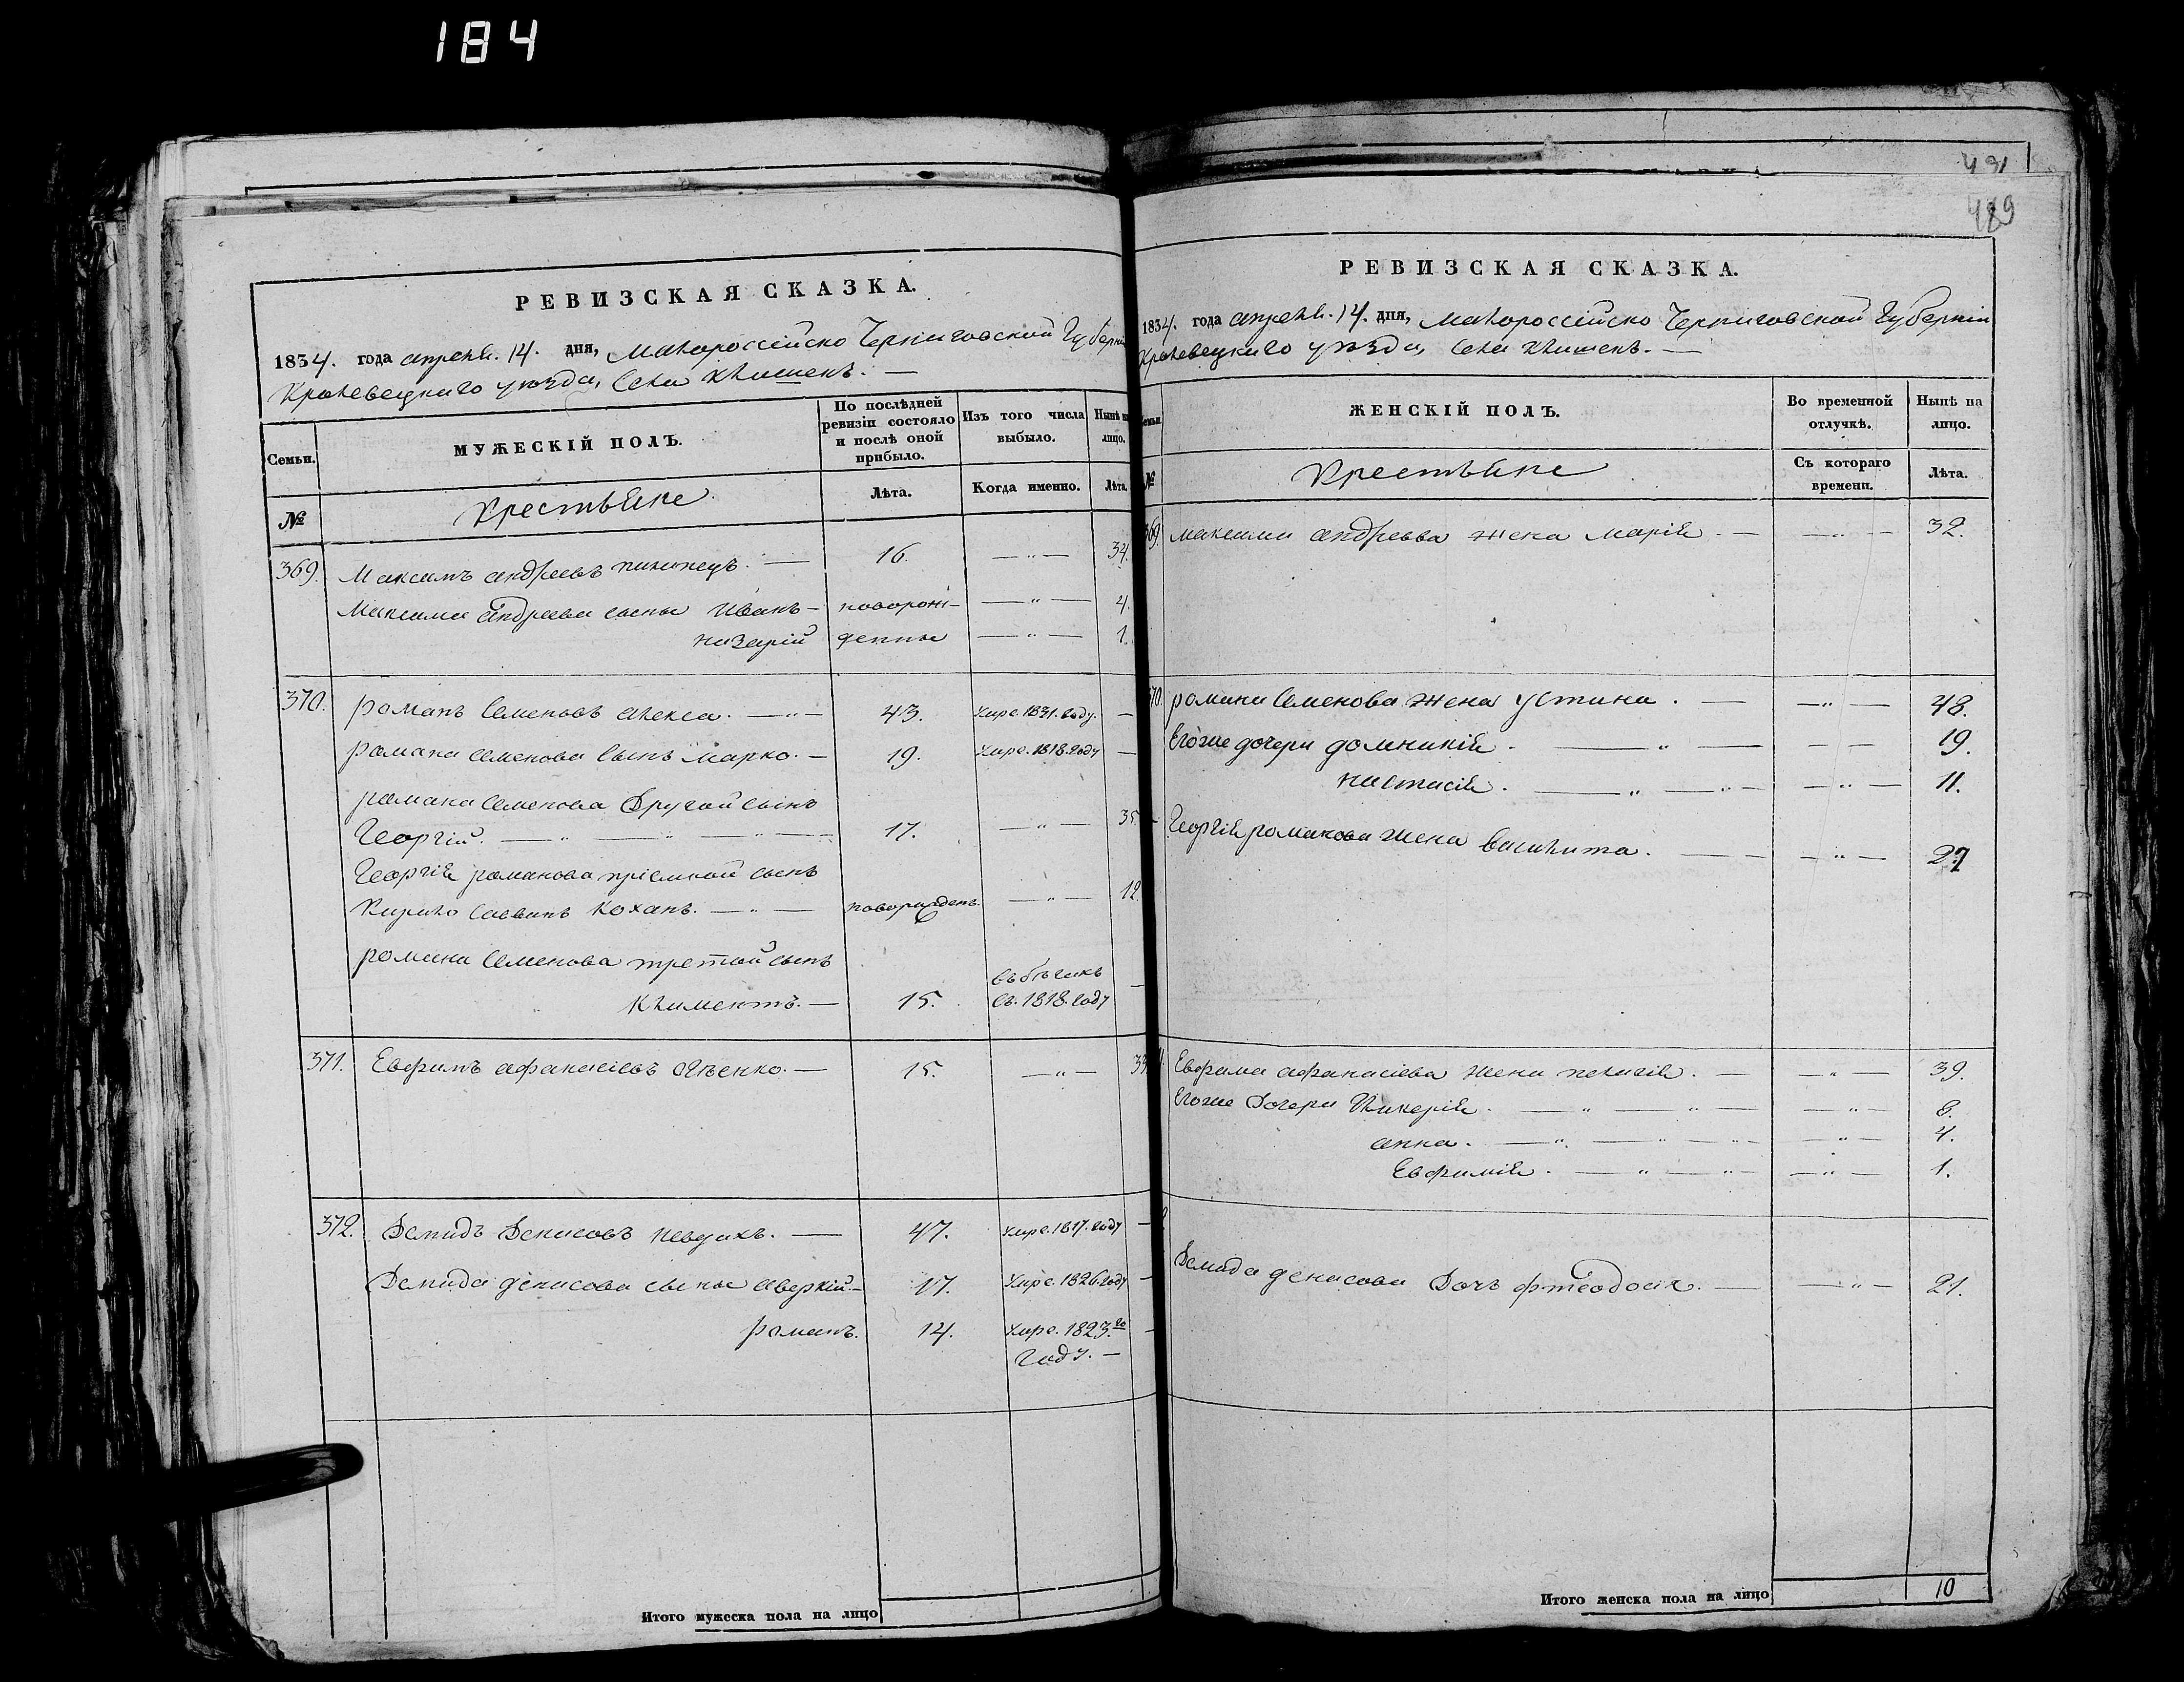 184
РЕВИЗСКАЯ СКАЗКА.
1834. года апреля. 14. дня, Малороссійско Черниговской Губерніи
Кролевецкаго уезда, Села Клишекъ. —
Семьи.
МУЖЕСКІЙ ПОЛЪ.
По послѣдней ревизіи состояло и послѣ оной прибыло.
Изъ того числа выбыло.
Нынѣ на лицо.
№
Крестьяне
Лѣта.
Когда именно.
Лѣта.
369. Максимъ андреевъ — 16. — „ — 34.
Максима андреева сыны Иванъ — новорож- — „ — 4.
назарій денны — „ — 1.
370. романъ Семеновъ алекса. — „ — 43. умре. 1831. году. —
романа Семенова Сынъ марко. — 19. умре. 1818. году —
романа Семенова Другой Сынъ
Георгій. — „ — „ — „ — 17. — „ — 35.
Георгія романова пріемной сынъ
Кирило Савинъ Коханъ. — „ — новорожденъ. — „ — 12.
романа Семенова третой сынъ
Климентъ. — 15. въ бѣгахъ
съ. 1818. году —
371. Евфимъ афанасіевъ — 15. — „ — 33
372. Демидъ Денисовъ — 47. умре. 1817. году —
Демида денисова сыны аверкій. — 17. умре. 1826. году —
романъ. 14. умре. 1823.го
году. —
Итого мужеска пола на лицо
431
429
РЕВИЗСКАЯ СКАЗКА.
1834. года апреля. 14. дня, Малороссійско Черниговской Губерніи
Кролевецкаго уезда, Села Клишекъ. —
Семьи.
ЖЕНСКІЙ ПОЛЪ.
Во временной отлучкѣ.
Нынѣ на лицо.
№
Крестьяне
Съ котораго времени.
Лѣта.
369. максима андреева жена марія. — — „ — 32.
370. романа Семенова жена устина. — — „ — 48.
Егоже дочери домникія. — „ — — — 19.
настасія. — „ — „ — — „ — 11.
Георгія романова жена василита. — — — „ — 27
Евфима афанасіева жена пелагія. — — „ — 39.
Егоже Дочери Гликерія. — „ — „ — — „ — 8.
анна. — „ — „ — „ — — „ — 4.
Евфимія. — „ — „ — — „ — 1.
Демида денисова Дочь фтеодосія. — — „ — 21.
Итого женска пола на лицо 10